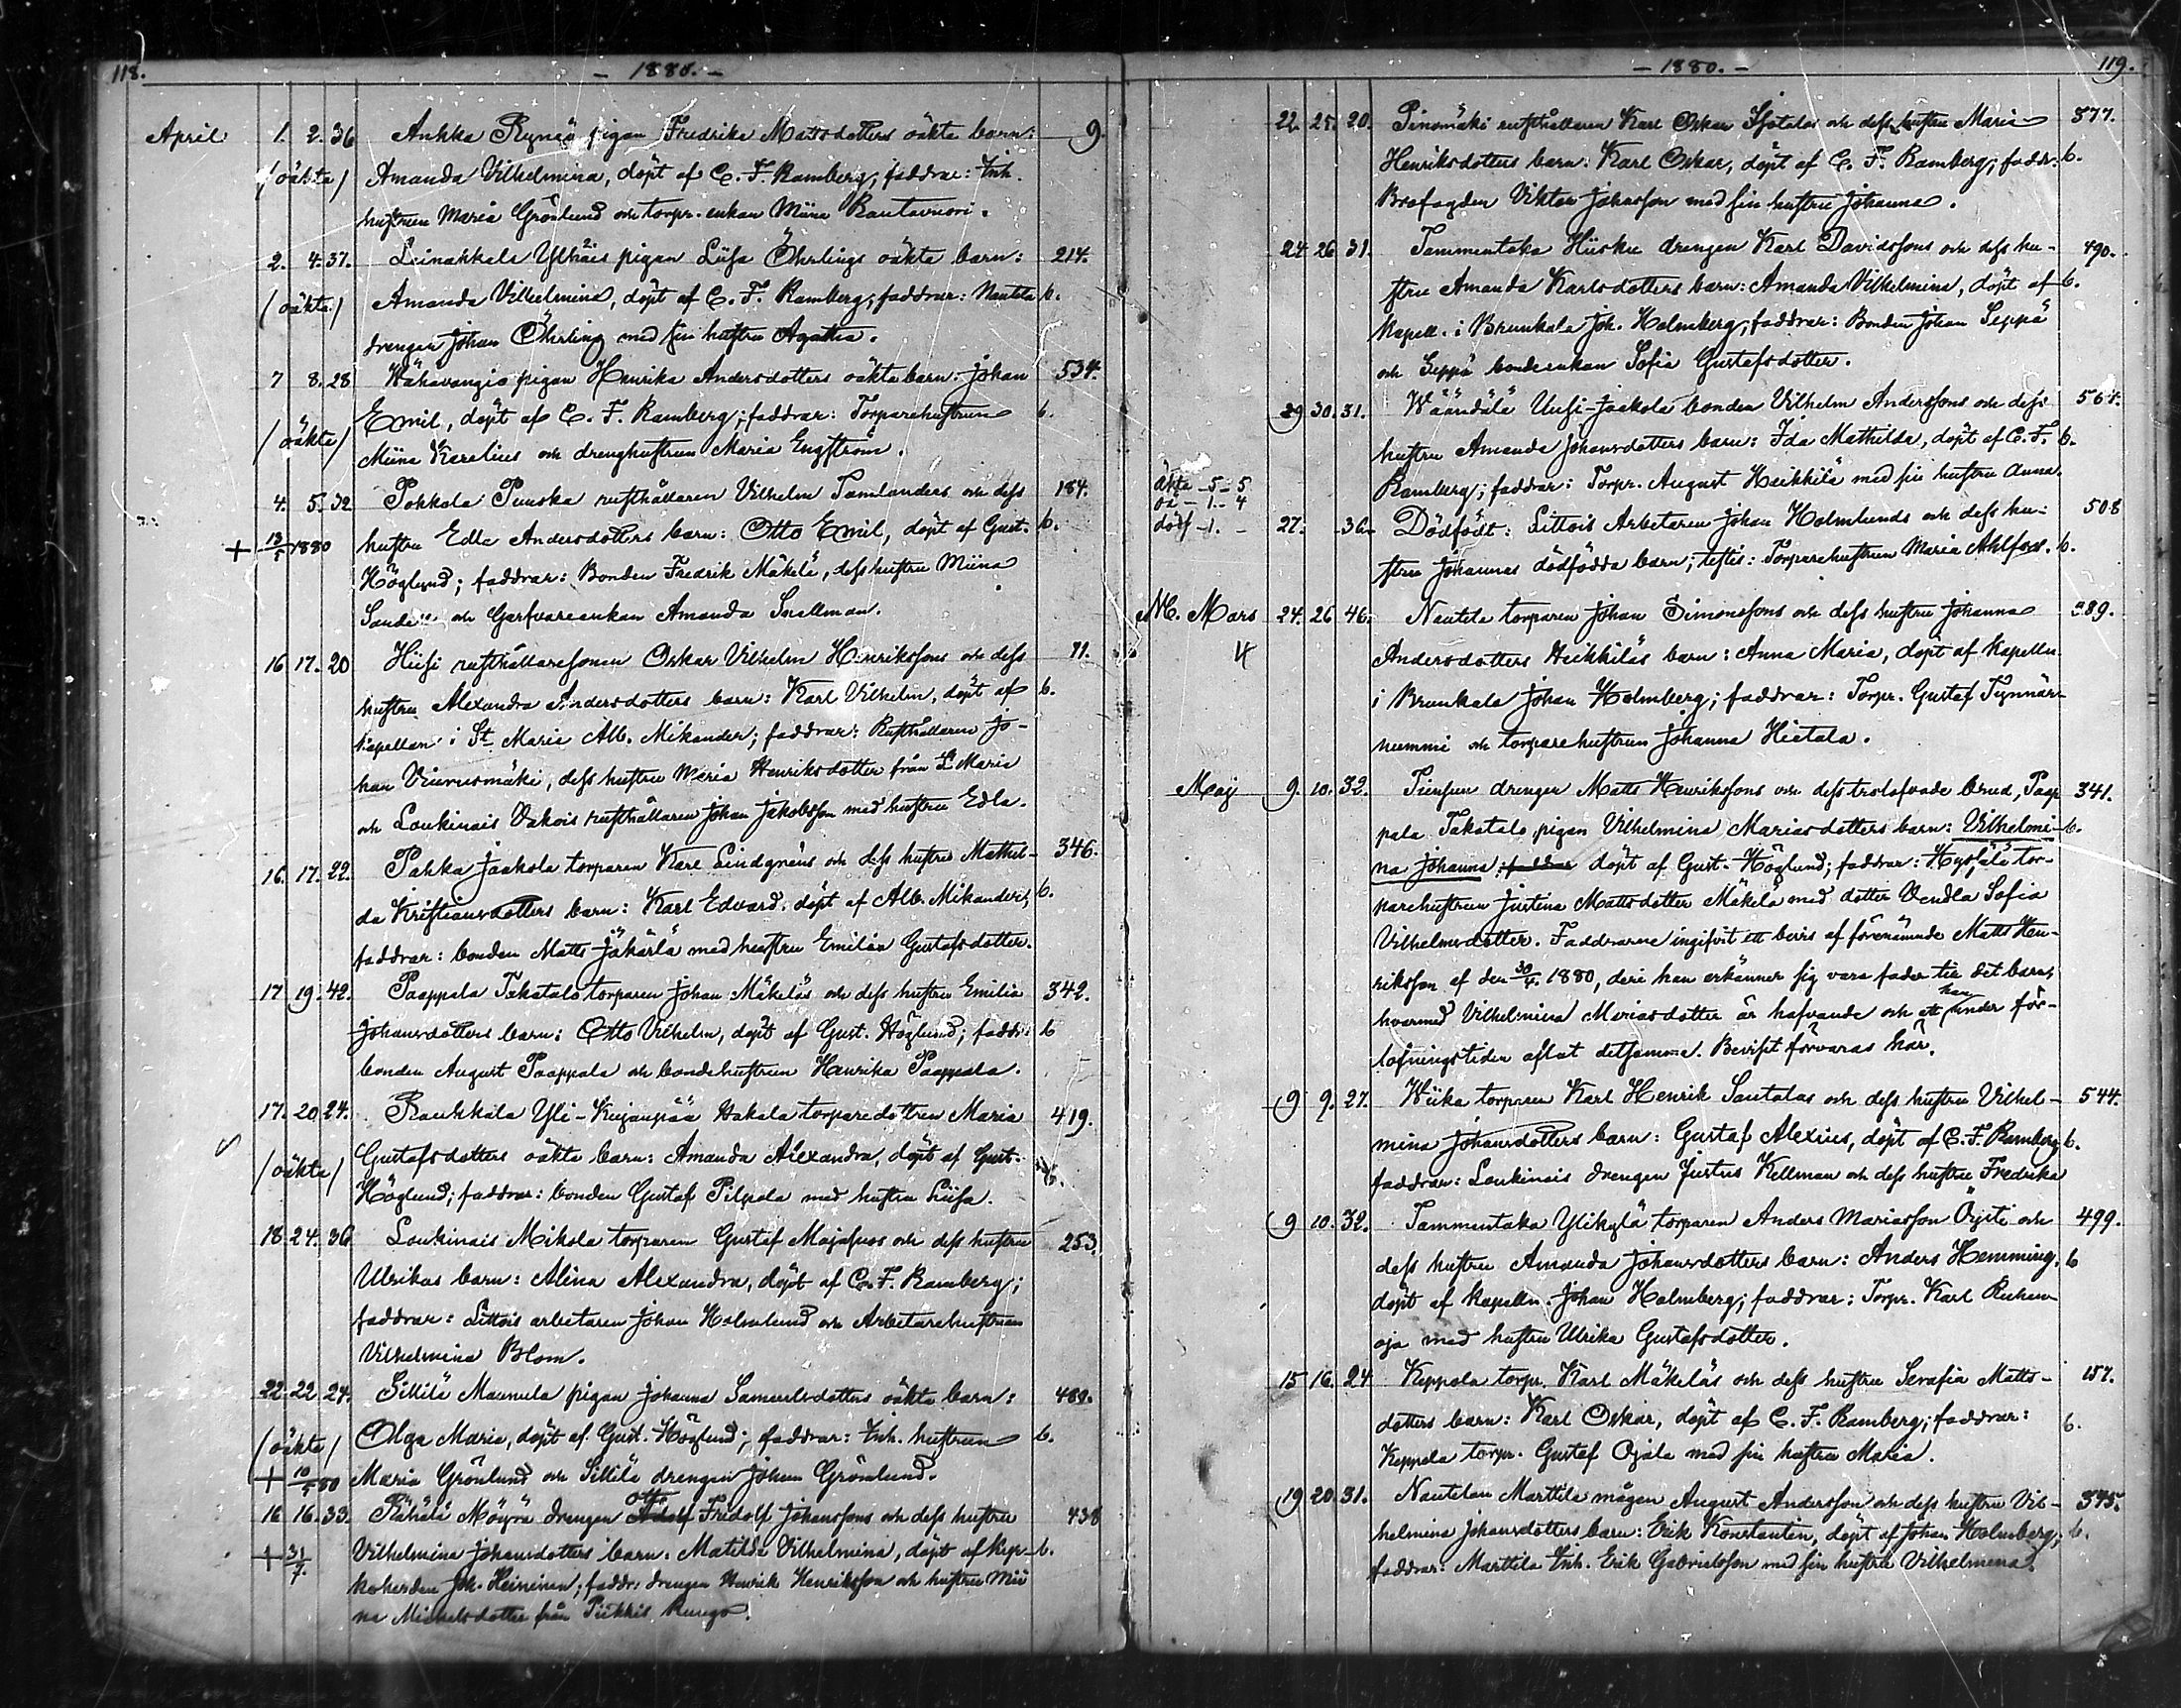 118.
- 1880. -
April 1. 2. 36 Ankka Rynäs pigan Fredrika Mattsdotters oäkta barn: 9.
/oäkta/ Amanda Vilhelmina, döpt af C. F. Ramberg; faddrar: Inh.
hustrun Maria Grönlund och torpr. enkan Miina Rantavuori.
2. 4. 37. Leinakkala Ylhäis pigan Liisa Öhrlings oäkta barn: 214.
/oäkta/ Amanda Vilhelmina, döpt af C. F. Ramberg; faddrar: Nautela b.
drengen Johan Öhrling med sin hustru Agatha.
7 8. 28 Wähävangio pigan Henrika Andersdotters oäkta barn. Johan 534.
/oäkta/ Emil, döpt af C. F. Ramberg; faddrar: Torparehustrun b.
Miina Karelius och dreng hustrun Maria Engström.
4. 5. 32 Pokkola Puuska rusthållaren Vilhelm Tamlanders och dess 184.
+ 13/5 1880 hustru Edla Andersdotters barn: Otto Emil, döpt af Gust. b.
Höglund; faddrar: Bonden Fredrik Mäkelä, dess hustru Miina
och Garfvareenkan Amanda Snellman.
16 17. 20 Hiisi rusthållaresonen Oskar Vilhelm Henrikssons och dess 71.
hustru Alexandra Andersdotters barn: Karl Vilhelm, döpt af b.
kapellan i St Marie Alb. Mikander; faddrar: Rusthållaren Jo-
han Vierusmäki, dess hustru Maria Henriksdotter från St Marie
och Loukinais Vakois rusthållaren Johan Jakobsson med hustru Edla.
16. 17. 22. Pahka Jaakola torparen Karl Lindgréns och dess hustru Mathil- 346.
da Kristiansdotters barn: Karl Edvard. döpt af Alb. Mikander; b.
faddrar: bonden Matts Jäkärlä med hustru Emilia Gustafsdotter.
17 19. 42. Paappala Takatalo torparen Johan Mäkeläs och dess hustru Emilia 342.
Johansdotters barn: Otto Vilhelm, döpt af Gust. Höglund; faddr: b
bonden August Paappala och bondehustrun Henrika Paappala.
17. 20 24. Raukkala Yli-Kujanpää Hakala torparedottren Maria 419.
/oäkta/ Gustafsdotters oäkta barn: Amanda Alexandra, döpt af Gust. b.
Höglund; faddrar: bonden Gustaf Pilpola med hustru Liisa.
18 24. 36 Loukinais Mikola torparen Gustaf Majasuos och dess hustru 253.
Ulrikas barn: Alina Alexandra, döpt af C. F. Ramberg;
faddrar: Littois arbetaren Johan Holmlund och Arbetarehustrun
Vilhelmina Blom.
22. 22 24. Sillilä Maunula pigan Johanna Samuelsdotters oäkta barn: 489.
/oäkta/ Olga Maria, döpt af Gust. Höglund; faddrar: Inh. hustrun b.
+ 10/5 80 Maria Grönlund och Sillilä drengen Johan Grönlund.
16 16. 33. Rähälä Möyrä drengen Adolf Otto Fridolf Johanssons och dess hustru 438
+ 31/7. Vilhelmina Johansdotters barn. Matilda Vilhelmina, döpt af Kyr- b.
koherden Joh. Heininen; faddr: drengen Henrik Henriksson och hustru Mii
na Mickelsdotter från Pikkis Runge.
- 1880. - 119.
22. 25. 20. Pinomäki rusthållaren Karl Oskar Isotalos och dess hustru Maria 577.
Henriksdotters barn: Karl Oskar, döpt af C. F. Ramberg; faddr: b.
Brofogden Viktor Johansson med sin hustru Johanna.
24 26 31. Tammentaka Hiiska drengen Karl Davidssons och dess hu- 490.
stru Amanda Karlsdotters barn: Amanda Vilhelmina, döpt af b.
Kapell. i Brunkala Joh. Holmberg; faddrar: Bonden Johan Seppä
och Seppä bondeenkan Sofia Gustafsdotter.
29 30. 31. Wäändälä Uusi-Jaakola bonden Vilhelm Anderssons och dess 564.
hustru Amanda Johansdotters barn: Ida Mathilda, döpt af C. F. b.
Ramberg; faddrar: Torpr. August Heikkilä med sin hustru Anna.
Äkta - 5 - 5
oä - 1. - 4
döf - 1. - 27. - 36. Dödfödt: Littois Arbetaren Johan Holmlunds och dess hu- 508
stru Johannas dödfödda barn; testis: Torparehustrun Maria Ahlfors. b.
M. Mars 24. 26 46. Nautela torparen Johan Simonssons och dess hustru Johanna 289.
4 Andersdotters Heikkiläs barn: Anna Maria, döpt af Kapelln.
i Brunkala Johan Holmberg; faddrar: Torpr. Gustaf Tynnär-
nummi och torparehustrun Johanna Hietala.
Maj 9. 10. 32. Tiensuu drengen Matts Henrikssons och dess trolofvade brud, Paap 341.
pala Takatalo pigan Vilhelmina Mariasdotters barn: Vilhelmi- b.
na Johanna; faddrar döpt af Gust. Höglund; faddrar: tor-
parehustrun Justina Mattsdotter Mäkelä med dotter Vendla Sofia
Vilhelmsdotter. Faddrarne ingifvit ett bevis af förenämnde Matts Hen-
riksson af den 30/4. 1880, deri han erkänner sig vara fader till det barn,
hvarmed Vilhelmina Mariasdotter är hafvande och att han under för-
lofningstiden aflat detsamma. Beviset förvaras här.
9 9. 27. Wiika torparen Karl Henrik Santalas och dess hustru Vilhel- 544.
mina Johansdotters barn: Gustaf Alexius, döpt af C. F. Ramberg; b.
faddrar: Loukinais drengen Justus Kellman och dess hustru Fredrika
9 10. 32. Tammentaka Ylikylä torparen Anders Mariasson Öysti och 499.
dess hustru Amanda Johansdotters barn: Anders Hemming, b
döpt af Kapelln. Johan Holmberg; faddrar: Torpr. Karl Ruhan-
oja med hustru Ulrika Gustafsdotter.
15 16. 24 Keppola torpr. Karl Mäkeläs och dess hustru Serafia Matts- 157.
dotters barn: Karl Oskar, döpt af C. F. Ramberg; faddrar: b.
Keppola torpr. Gustaf Ojala med sin hustru Maria.
19 20. 31. Nautelan Marttila mågen August Andersson och dess hustru Vil- 375.
helmina Johansdotters barn: Erik Konstantin, döpt af Johan Holmberg; b.
faddrar: Marttila Inh. Erik Gabrielsson med sin hustru Vilhelmina.